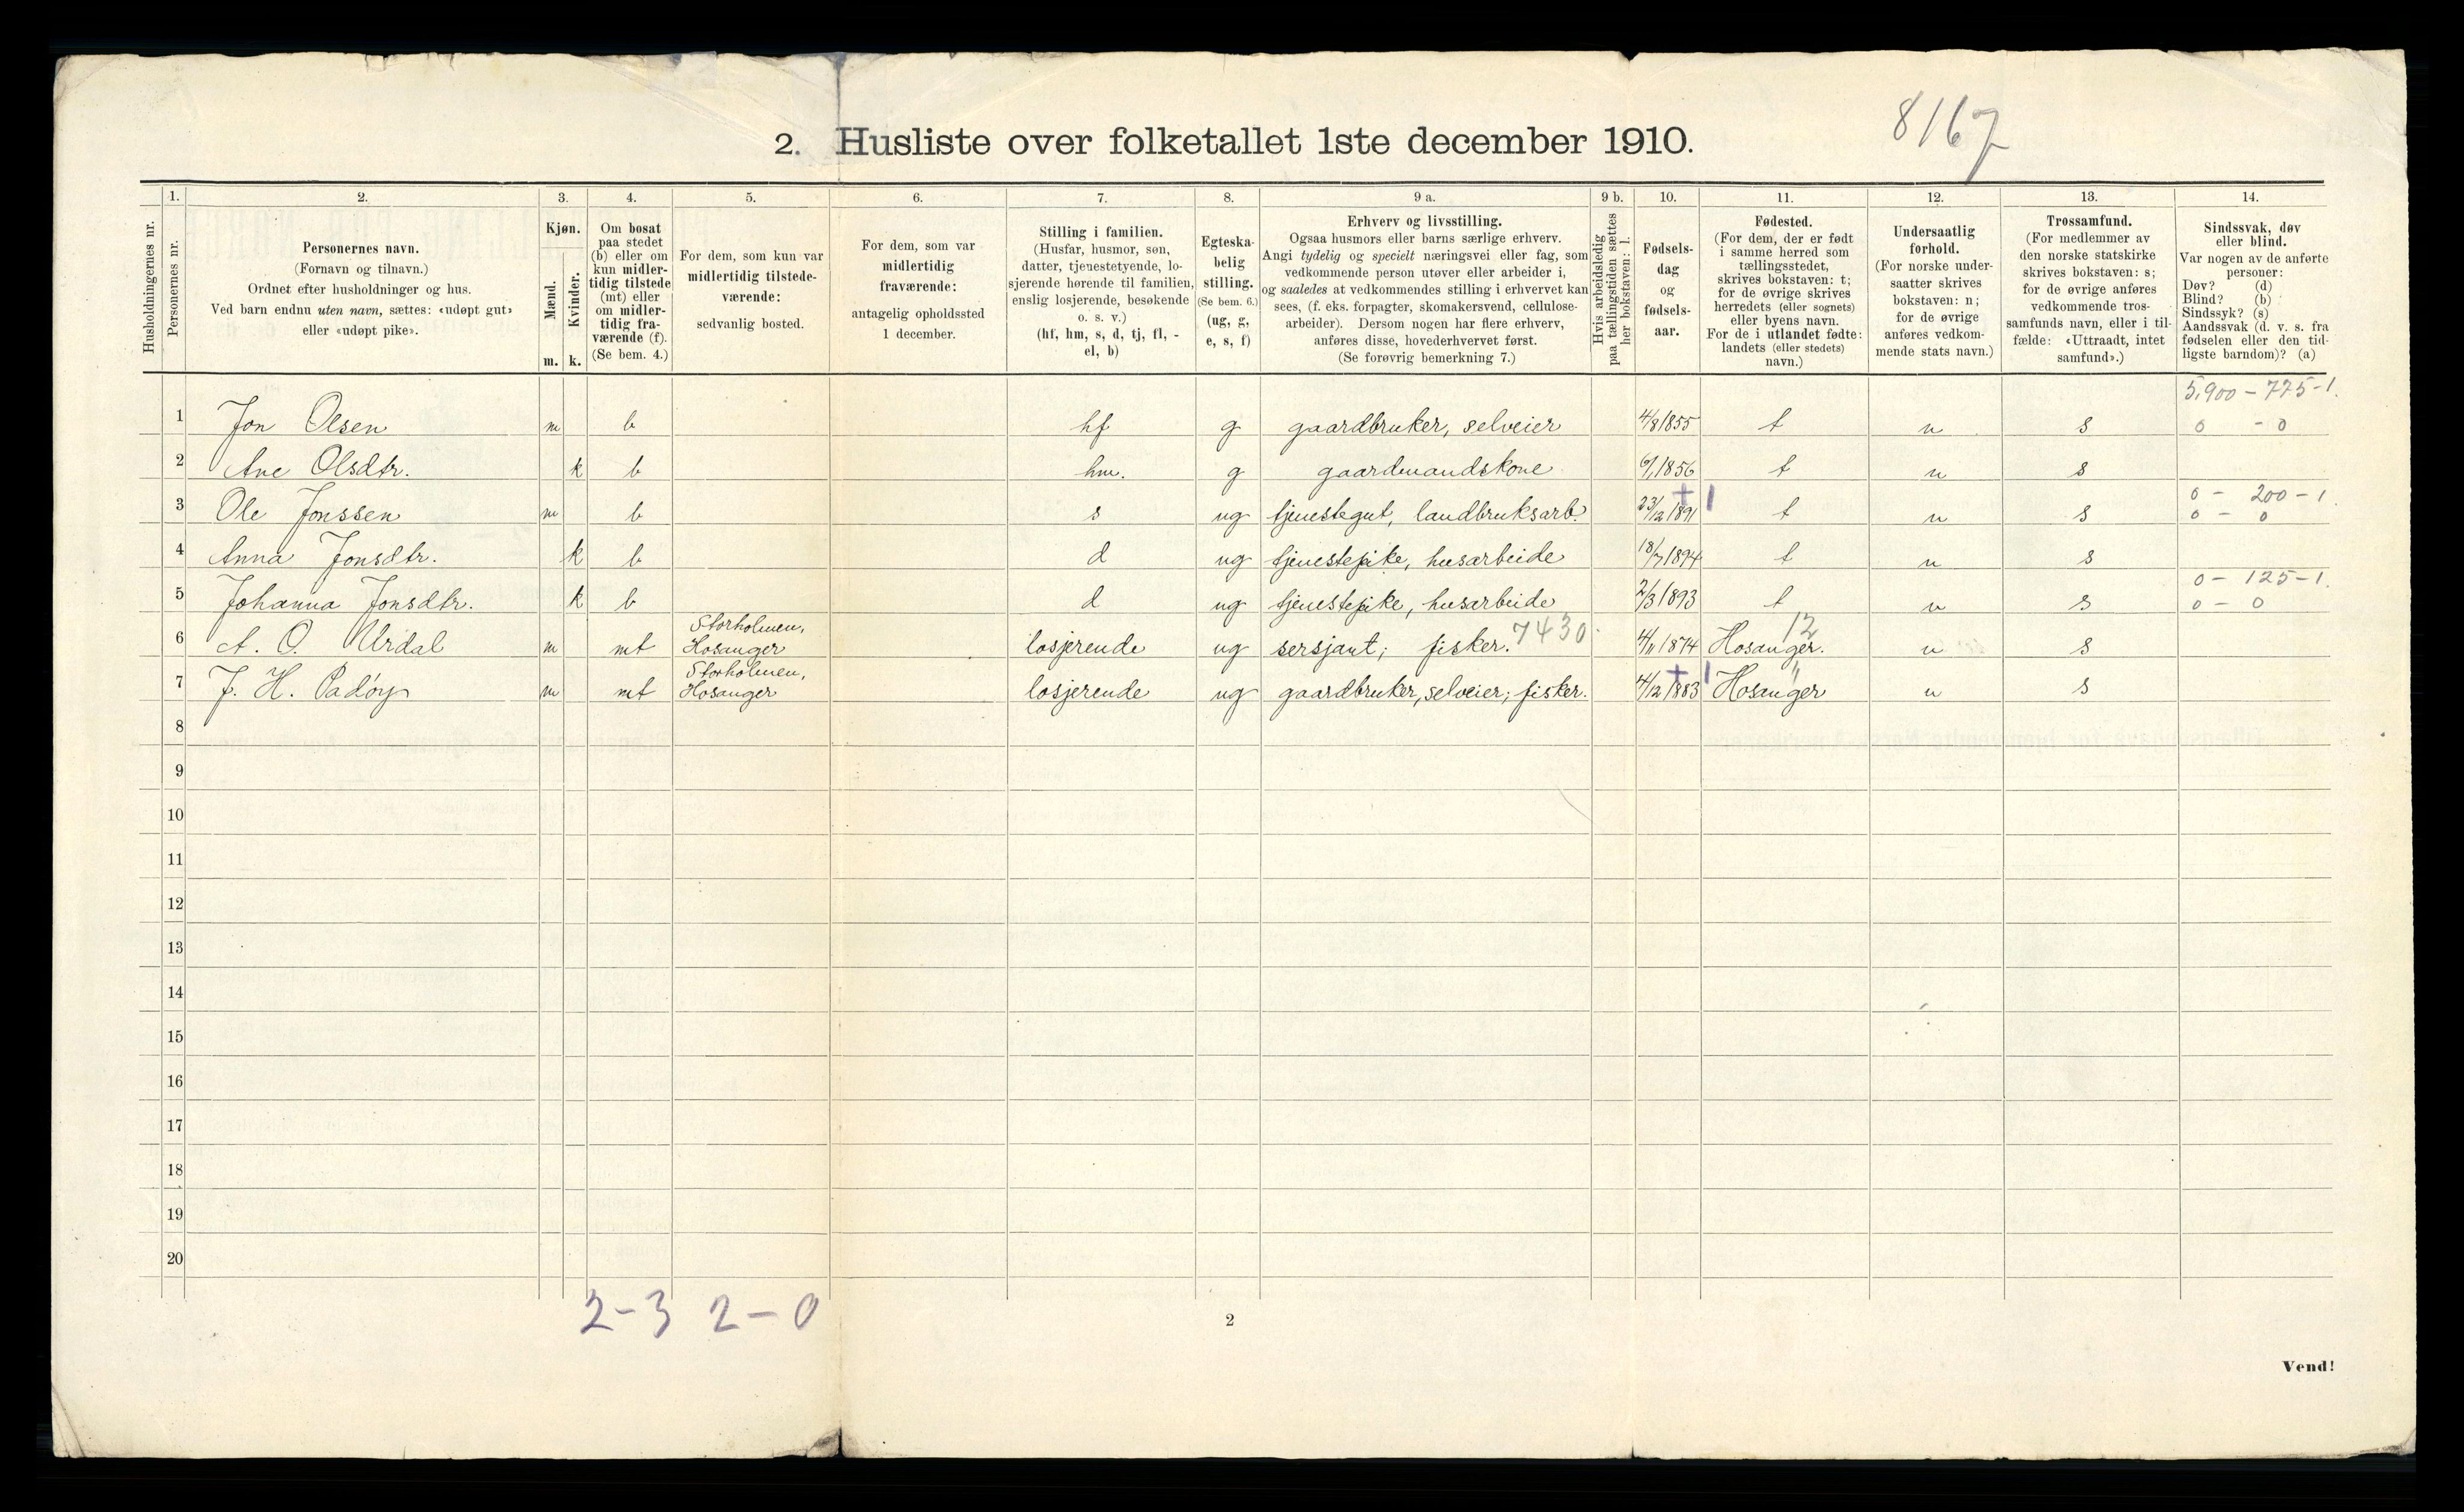 8167
2. Husliste over folketallet 1ste december 1910.
Husholdningernes nr.
1.
Personernes nr.
2.
Personernes navn.
(Fornavn og tilnavn.)
Ordnet efter husholdninger og hus.
Ved barn endnu uten navn, sættes: «udøpt gut»
eller «udøpt pike».
3.
Kjøn.
Mænd.
Kvinder.
m. k.
4.
Om bosat
paa stedet
(b) eller om
kun midler-
tidig tilstede
(mt) eller
om midler-
tidig fra-
værende (f).
(Se bem. 4.)
5.
For dem, som kun var
midlertidig tilstede-
værende:
sedvanlig bosted.
6.
For dem, som var
midlertidig
fraværende:
antagelig opholdssted
1 december.
7.
Stilling i familien.
(Husfar, husmor, søn,
datter, tjenestetyende, lo-
sjerende hørende til familien,
enslig losjerende, besøkende
o. s. v.)
(hf, hm, s, d, tj, fl, -
el, b)
8.
Egteska-
belig
stilling.
(Se bem. 6.)
(ug, g,
e, s, f)
9 a.
Erhverv og livsstilling.
Ogsaa husmors eller barns særlige erhverv.
Angi tydelig og specielt næringsvei eller fag, som
vedkommende person utøver eller arbeider i,
og saaledes at vedkommendes stilling i erhvervet kan
sees, (f. eks. forpagter, skomakersvend, cellulose-
arbeider). Dersom nogen har flere erhverv,
anføres disse, hovederhvervet først.
(Se forøvrig bemerkning 7.)
9 b.
Hvis arbeidsledig
paa tællingstiden sættes
her bokstaven: l.
10.
Fødsels-
dag
og
fødsels-
aar.
11.
Fødested.
(For dem, der er født
i samme herred som
tællingsstedet,
skrives bokstaven: t;
for de øvrige skrives
herredets (eller sognets)
eller byens navn.
For de i utlandet fødte:
landets (eller stedets)
navn.)
12.
Undersaatlig
forhold.
(For norske under-
saatter skrives
bokstaven: n;
for de øvrige
anføres vedkom-
mende stats navn.)
13.
Trossamfund.
(For medlemmer av
den norske statskirke
skrives bokstaven: s;
for de øvrige anføres
vedkommende tros-
samfunds navn, eller i til-
fælde: «Uttraadt, intet
samfund».)
14.
Sindssvak, døv
eller blind.
Var nogen av de anførte
personer:
Døv? (d)
Blind? (b)
Sindssyk? (s)
Aandssvak (d. v. s. fra
fødselen eller den tid-
ligste barndom)? (a)
5,900 - 775-1.
1 Jon Olsen m b hf g gaardbruker, selveier 4/8 1855 t n s 0 - 0
2 Ane Olsdtr. k b hm. g gaardmandskone 6/1 1856 t n s
+ 1 0 - 200 - 1
3 Ole Jonssen m b s ug tjenestegut, landbruksarb. 23/12 1891 t n s 0 - 0
4 Anna Jonsdtr. k b d ug tjenestepike, husarbeide 18/7 1894 t n s
0 - 125 - 1.
5 Johanna Jonsdtr. k b d ug tjenestepike, husarbeide 2/3 1893 t n s 0 - 0
Storholmen, 7430. 12
6 A. O. Urdal m mt Hosanger losjerende ug sersjant; fisker. 4/11 1874 Hosanger. n s
Storholmen, + 1 "
7 J. H. Padøy m mt Hosanger losjerende ug gaardbruker, selveier; fisker. 4/12 1883 Hosanger n s
8
9
10
11
12
13
14
15
16
17
18
19
20
2-3 2-0
2
Vend!